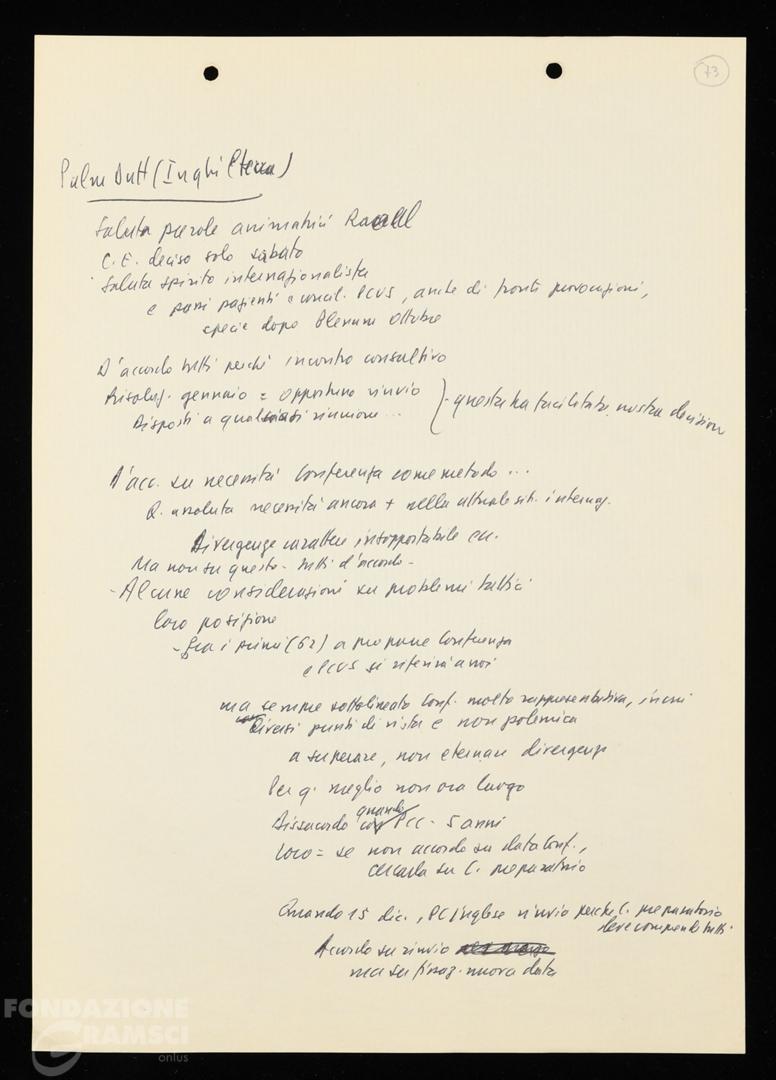 73
Palm Dutt (Inghilterra)
Saluta parole animatrici
C.E. deciso solo sabato
Saluta spirito internazionalista
e passi pazienti e concil. PCUS, anche di fronte provocazioni,
specie dopo Plenum Ottobre
D'accordo tutti perché incontro consultivo
Risoluz. gennaio = opportuno rinvio
Disposti a qualsiasi riunione...
- questa ha facilitato nostra decisione
D'acc. su necessità Conferenza come metodo...
Q. assoluta necessità ancora + nella attuale sit. internaz.
Divergenze carattere insopportabile
Ma non su questo - tutti d'accordo -
- Alcune considerazioni su problemi tattici
loro posizione
- Fra i primi (62) a proporre Conferenza
e PCUS si riferirà a noi
ma sempre sottolineato Conf. molto rappresentativa,
diversi punti di vista e non polemica
a superare, non eternare divergenze
Per q. meglio non ora luogo
Disaccordo quando PCC - 5 anni
loro = se non accordo su data Conf.,
cercarla su C. preparatorio
Quando 15 dic., PC Inglese rinvio perché C. preparatorio
deve comprende tutti.
Accordo su rinvio
ma su fissaz. nuova data
FONDAZIONE
GRAMSCI
onlus